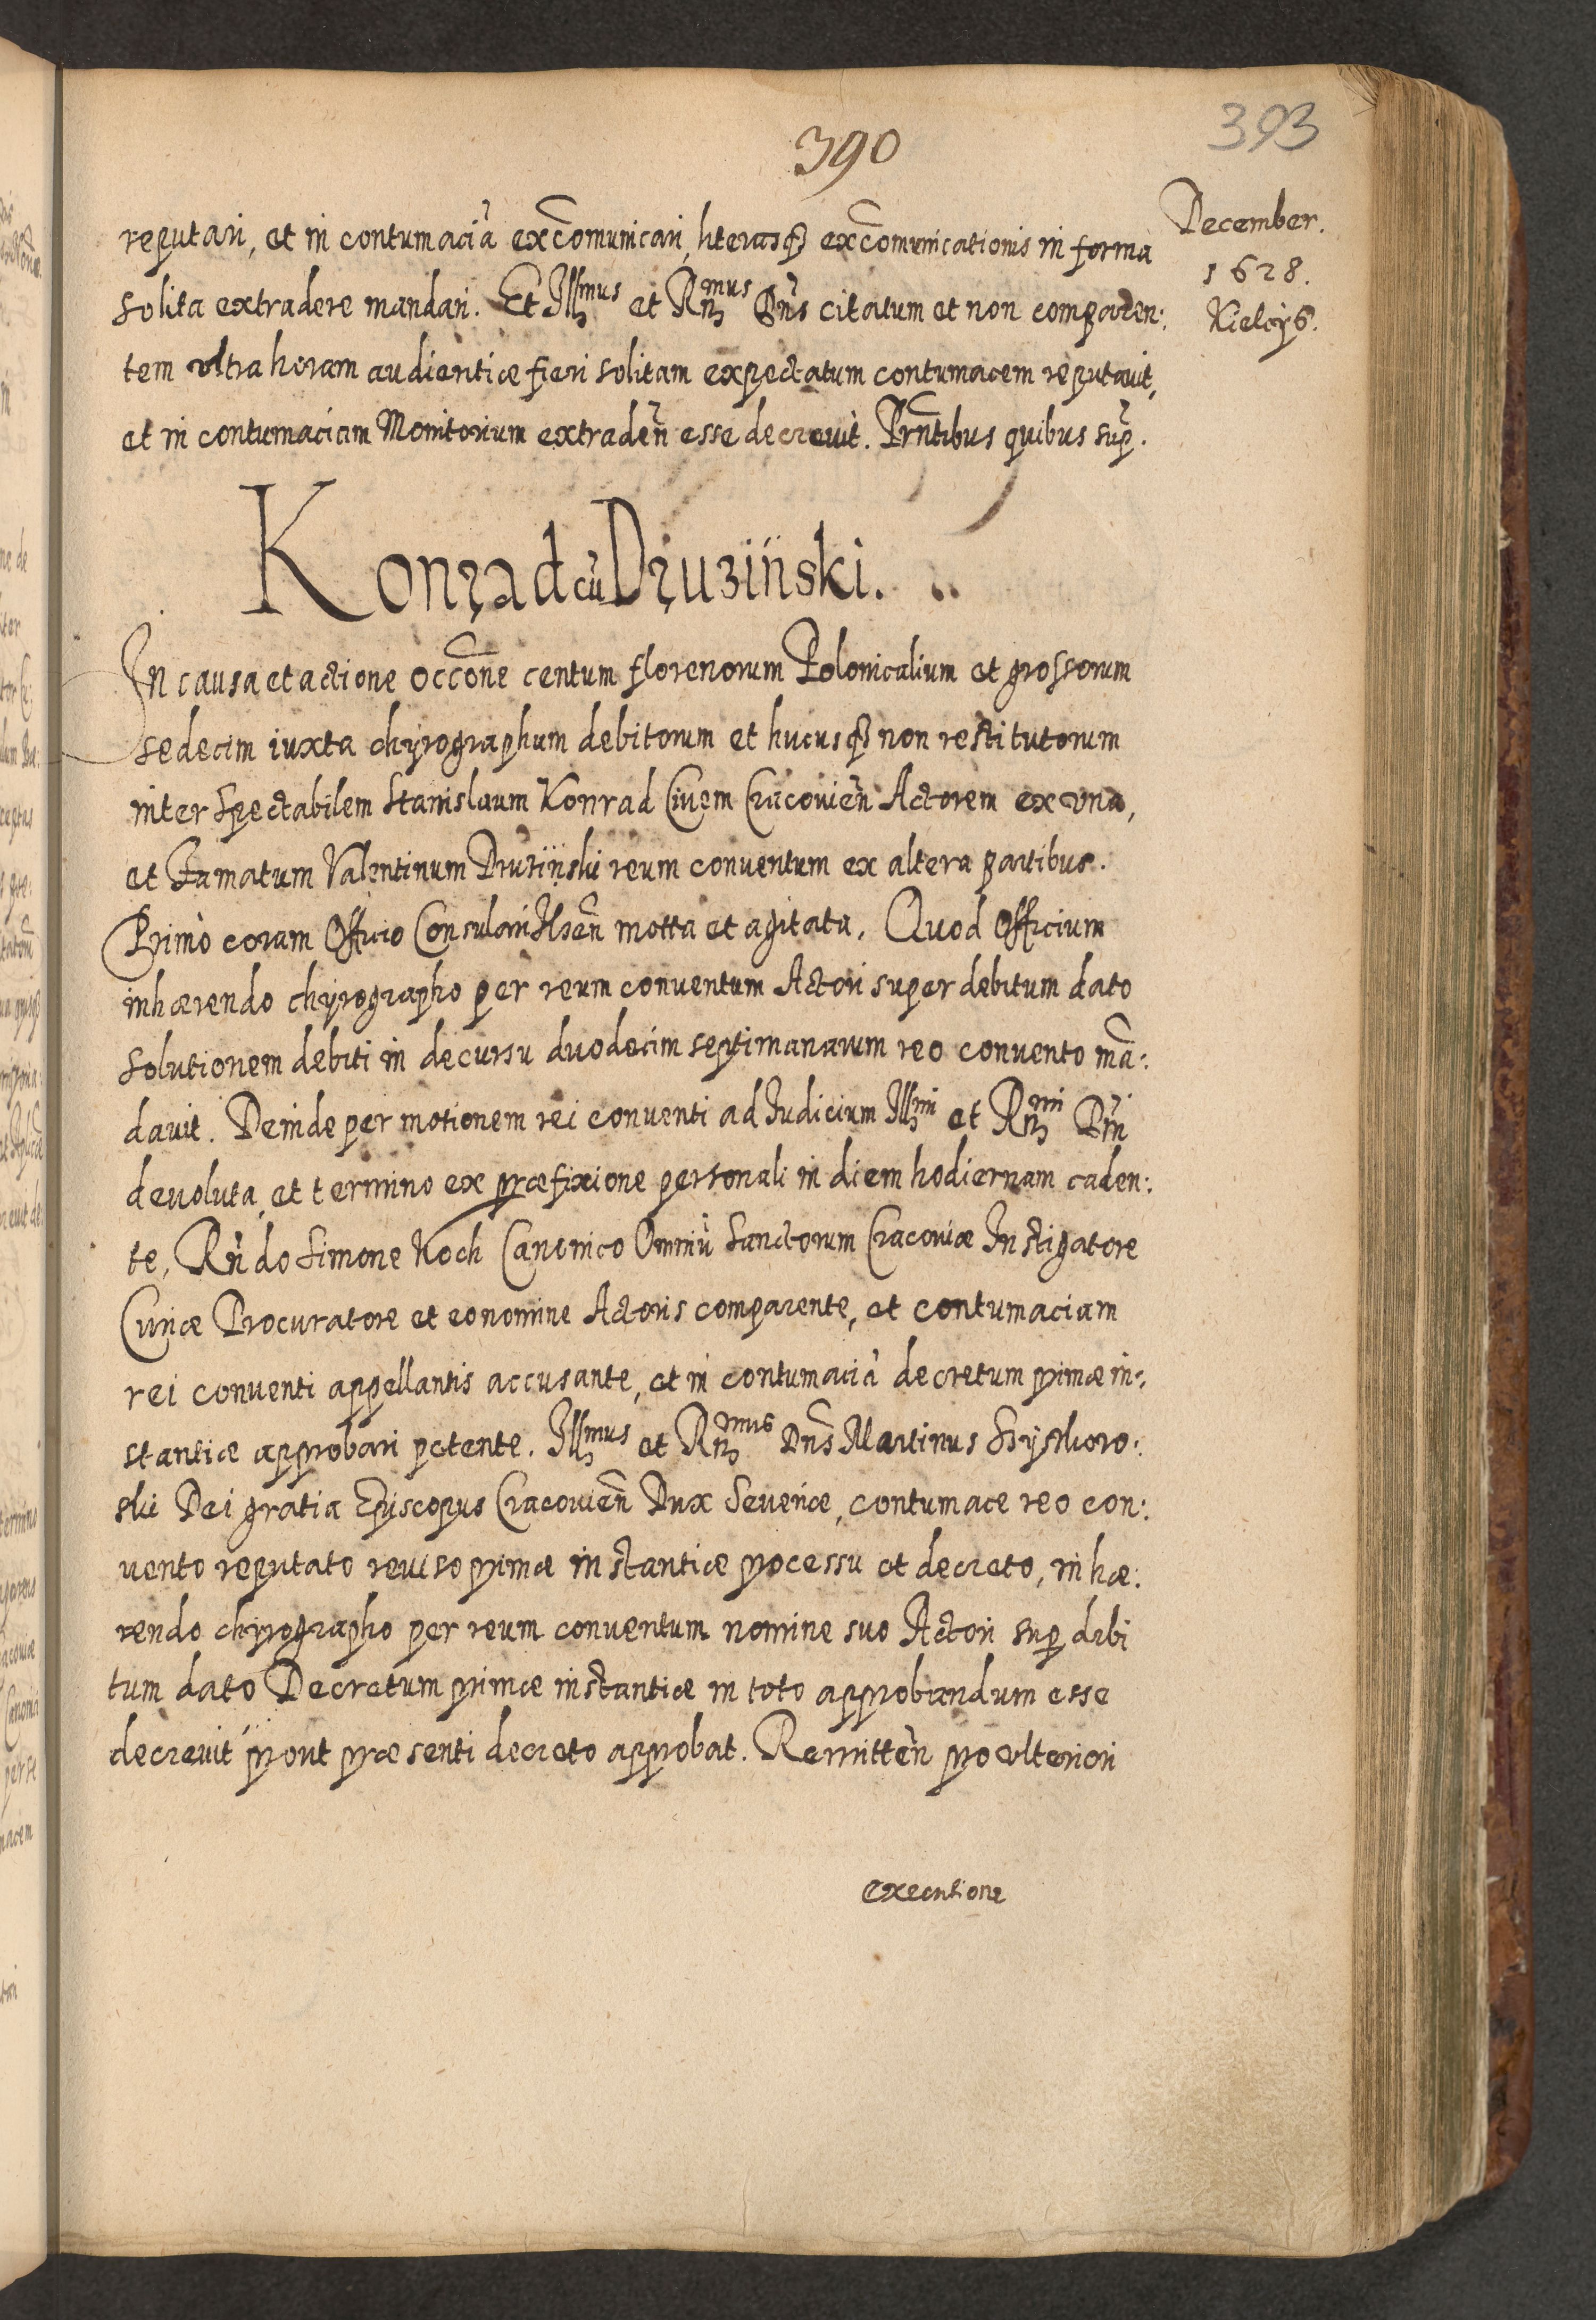 390
393
December.
1628.
Kielcÿs.
reputari, et in contumaciã excõmunicari, literasq́ȝ excõmunicationis in forma
solita extradere mandari. Et Illmus et Rmus Dns citatum et non comparen:
tem vltra horam audientiæ fieri solitam expectatum contumacem reputauit,
et in contumaciam Monitorium extradeñ esse decreuit. Prñtibus quibus sup̃.
Konrad cũ Druziński.
In causa et actione occõne centum florenorum Polonicalium et grossorum
sedecim iuxta chÿrographum debitorum et hucusq́ȝ non restitutorum
inter Spectabilem Stanislaum Konrad Ciuem Cracouień Actorem ex vna,
et Famatum Valentinum Druziński reum conuentum ex altera partibus.
Primò coram Officio Consulari Ilseñ motta et agitata. Quod Officium
inhærendo chÿrographo per reum conuentum Actori super debitum dato
solutionem debiti in decursu duodecim septimanarum reo conuento mã:
dauit. Deinde per motionem rei conuenti ad Iudicium Illmi et Rmi Dni
deuoluta, et termino ex præfixione personali in diem hodiernam caden:
te, Rñdo Simone Koch Canonico Omniũ Sanctorum Cracouiæ Instigatore
Curiæ Procuratore et eo nomine Actoris comparente, et contumaciam
rei conuenti appellantis accusante, et in contumaciã decretum primæ in:
stantiæ approbari petente. Illmus et Rmus Dñs Martinus Szÿszkow:
ski Dei gratia Episcopus Cracouieñ Dux Seueriæ, contumace reo con:
uento reputato reuiso primæ instantiæ processu et decreto, inhæ:
rendo chyrographo per reum conuentum nomine suo Actori sup debi
tum dato Decretum primæ instantiæ in toto approbandum esse
decreuit prout præsenti decreto approbat. Remitteñ pro vlteriori
executione